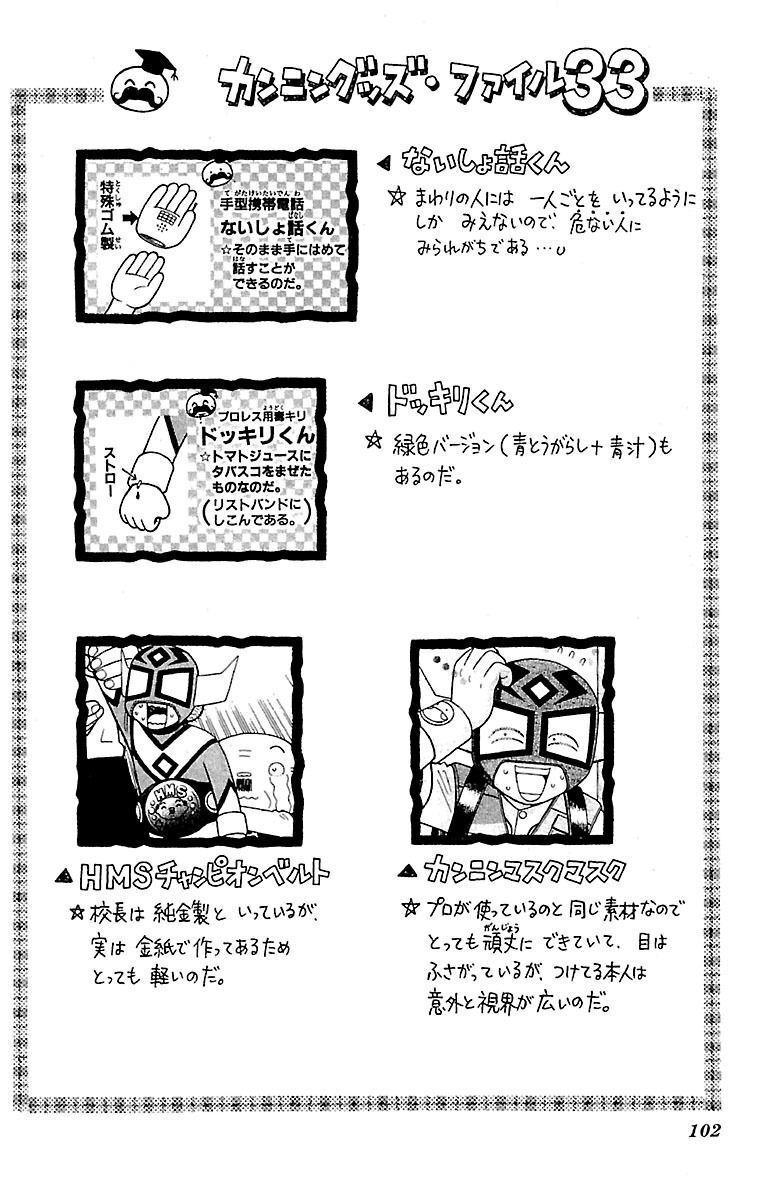 カンニングッズ・ファイル33
特殊ゴム製
とくしゅ
せい
てがたけいたいでんわ
手型携帯電話
ばなし
ないしょ話くん
☆そのまま手にはめて
て
話すことが
はな
できるのだ。
ないしょ話くん
☆まわりの人には 一人ごとを いってるように
しか みえないので、危ない人に
みられがちである…
ストロー
ようどく
プロレス用毒キリ
ドッキリくん
☆トマトジュースに
タバスコをまぜた
ものなのだ。
(リストバンドに
しこんである。)
ドッキリくん
☆緑色バージョン(青とうがらし+青汁)も
あるのだ。
HMS
HMSチャンピオンベルト
☆校長は 純金製と いっているが、
実は 金紙で作ってあるため
とっても 軽いのだ。
カンニンマスクマスク
☆プロが使っているのと同じ素材なので
がんじょう
とっても頑丈に できていて、目は
ふさがっているが、つけてる本人は
意外と視界が広いのだ。
102